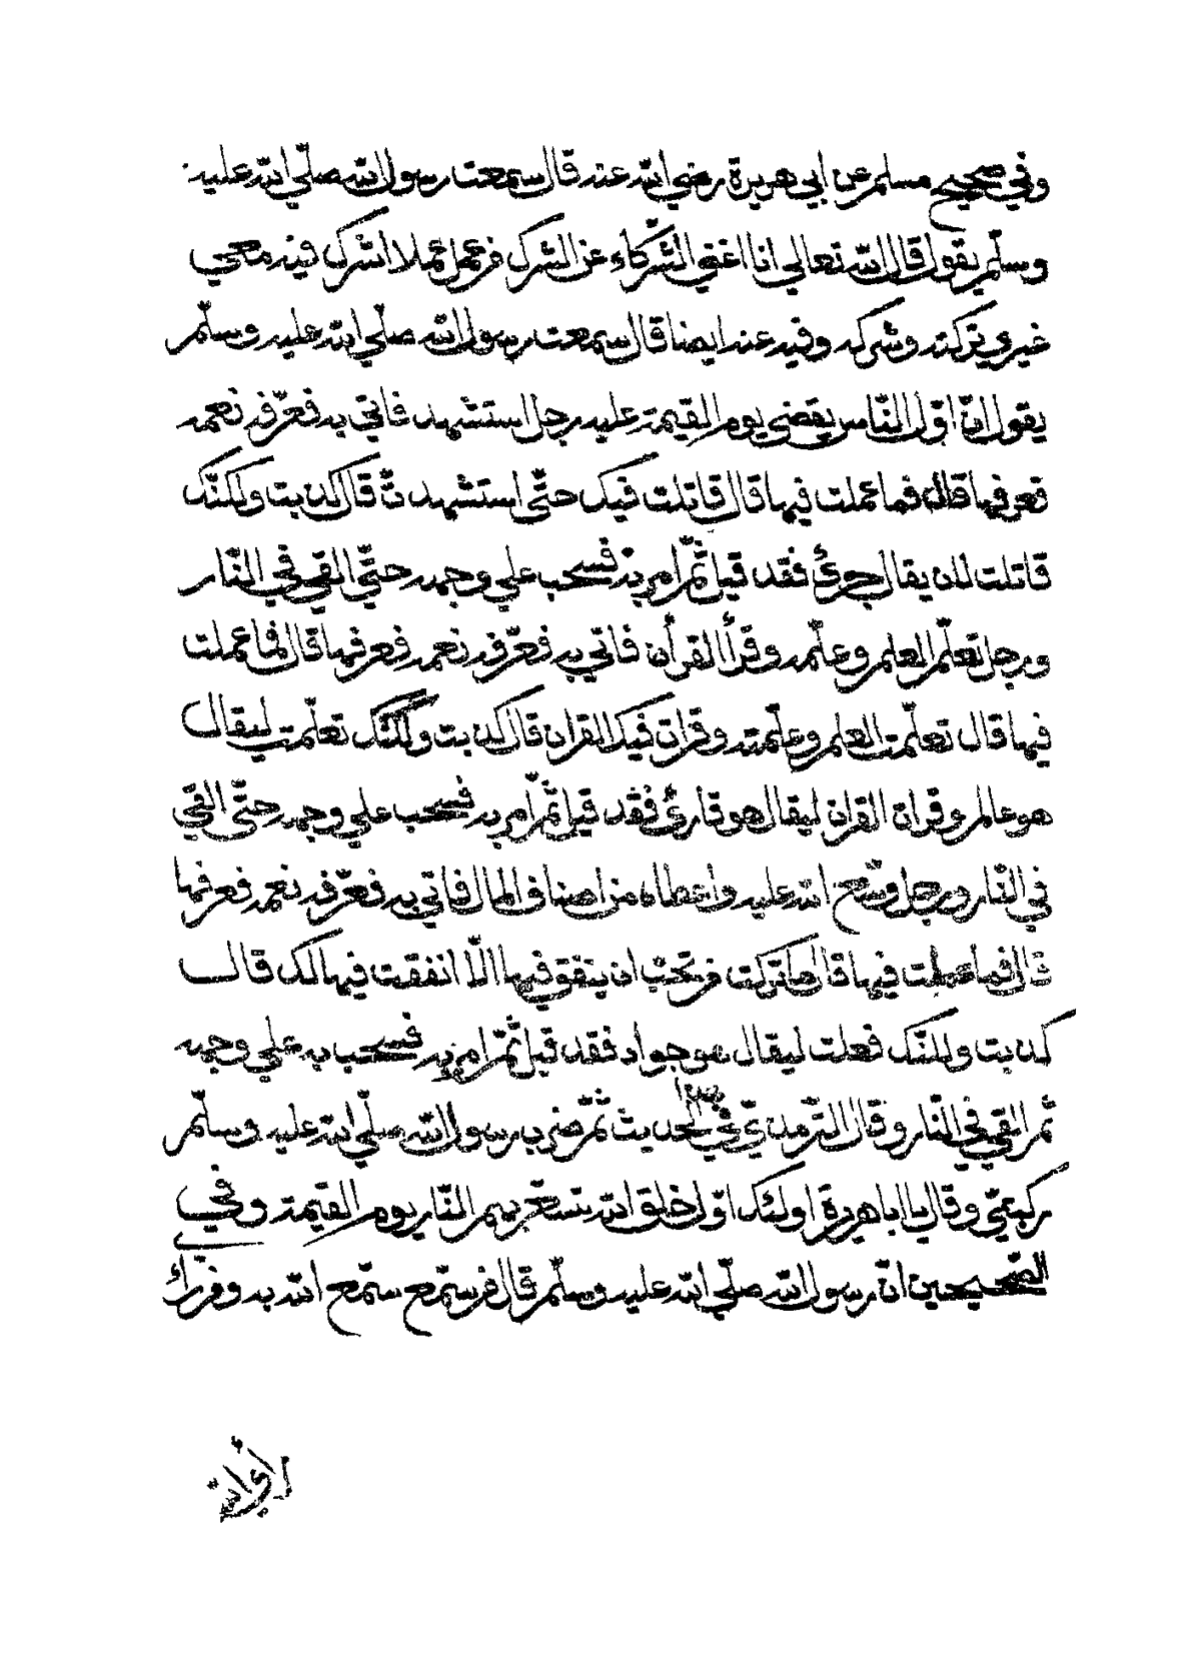 وفي صحيح مسلم عن ابي هريرة رضي الله عنه قال سمعت رسول الله صلّي الله عليه
وسلّم يقول قال الله تعالي انا اغني الشّركاء عن الشرك فمن عمل عملا اشرك فيه معي
غيري تركته وشركه وفيه عنه ايضا قال سمعت رسول الله صلّي الله عليه وسلّم
يقول انّ اوّل النّاس يقضي يوم القيمة عليه رجل استشهد فاتي به فعرّفه نعمه
فعرفها قال فما عملت فيها قال قاتلت فيك حتّي استشهدتّ قال كذبت ولكنّك
قاتلت لان يقال جرئ فقد قيل ثمّ امر به فسحب علي وجهه حتّي القي في النّار
ورجل تعلّم العلم وعلّمه وقرأ القرأن فاتي به فعرّفه نعمه فعرفها قال فما عملت
فيها قال تعلّمت العلم وعلّمته وقرات فيك القران قال كذبت ولكنّك تعلّمت ليقال
هو عالم وقرات القران ليقال هو قارئ فقد قيل ثمّ امر به فسحب علي وجهه حتّي القي
في النّار ورجل وسّع الله عليه واعطاه من اصناف المال فاتي به فعرّفه نعمه فعرفها
قال فما عملت فيها قال ما تركت من تحبّ ان ينفق فيها الّا انفقت فيها لك قال
كذبت ولكنّك فعلت ليقال هو جواد فقد قيل ثمّ امر به فسحب به علي وجهه
ثمّ القي في النّار وقال التّرمذيّ في الحديث ثمّ ضرب رسول الله صلّي الله عليه وسلّم
ركبتيّ وقال يا ابا هريرة اولئك اوّل خلق الله تسعّر بهم النّار يوم القيمة وفي
الصّحيحين انّ رسول الله صلّي الله عليه وسلّم قال من سمّع سمّع الله به ومن رائ